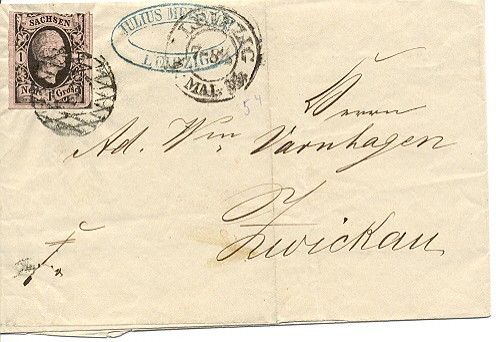 SACHSEN
1 1
Neu-Grosch.
JULIUS
LEIPZIG
LEIPZIG
MAI
54
Herrn
Ad. Wm. Varnhagen
Zwickau
fr.